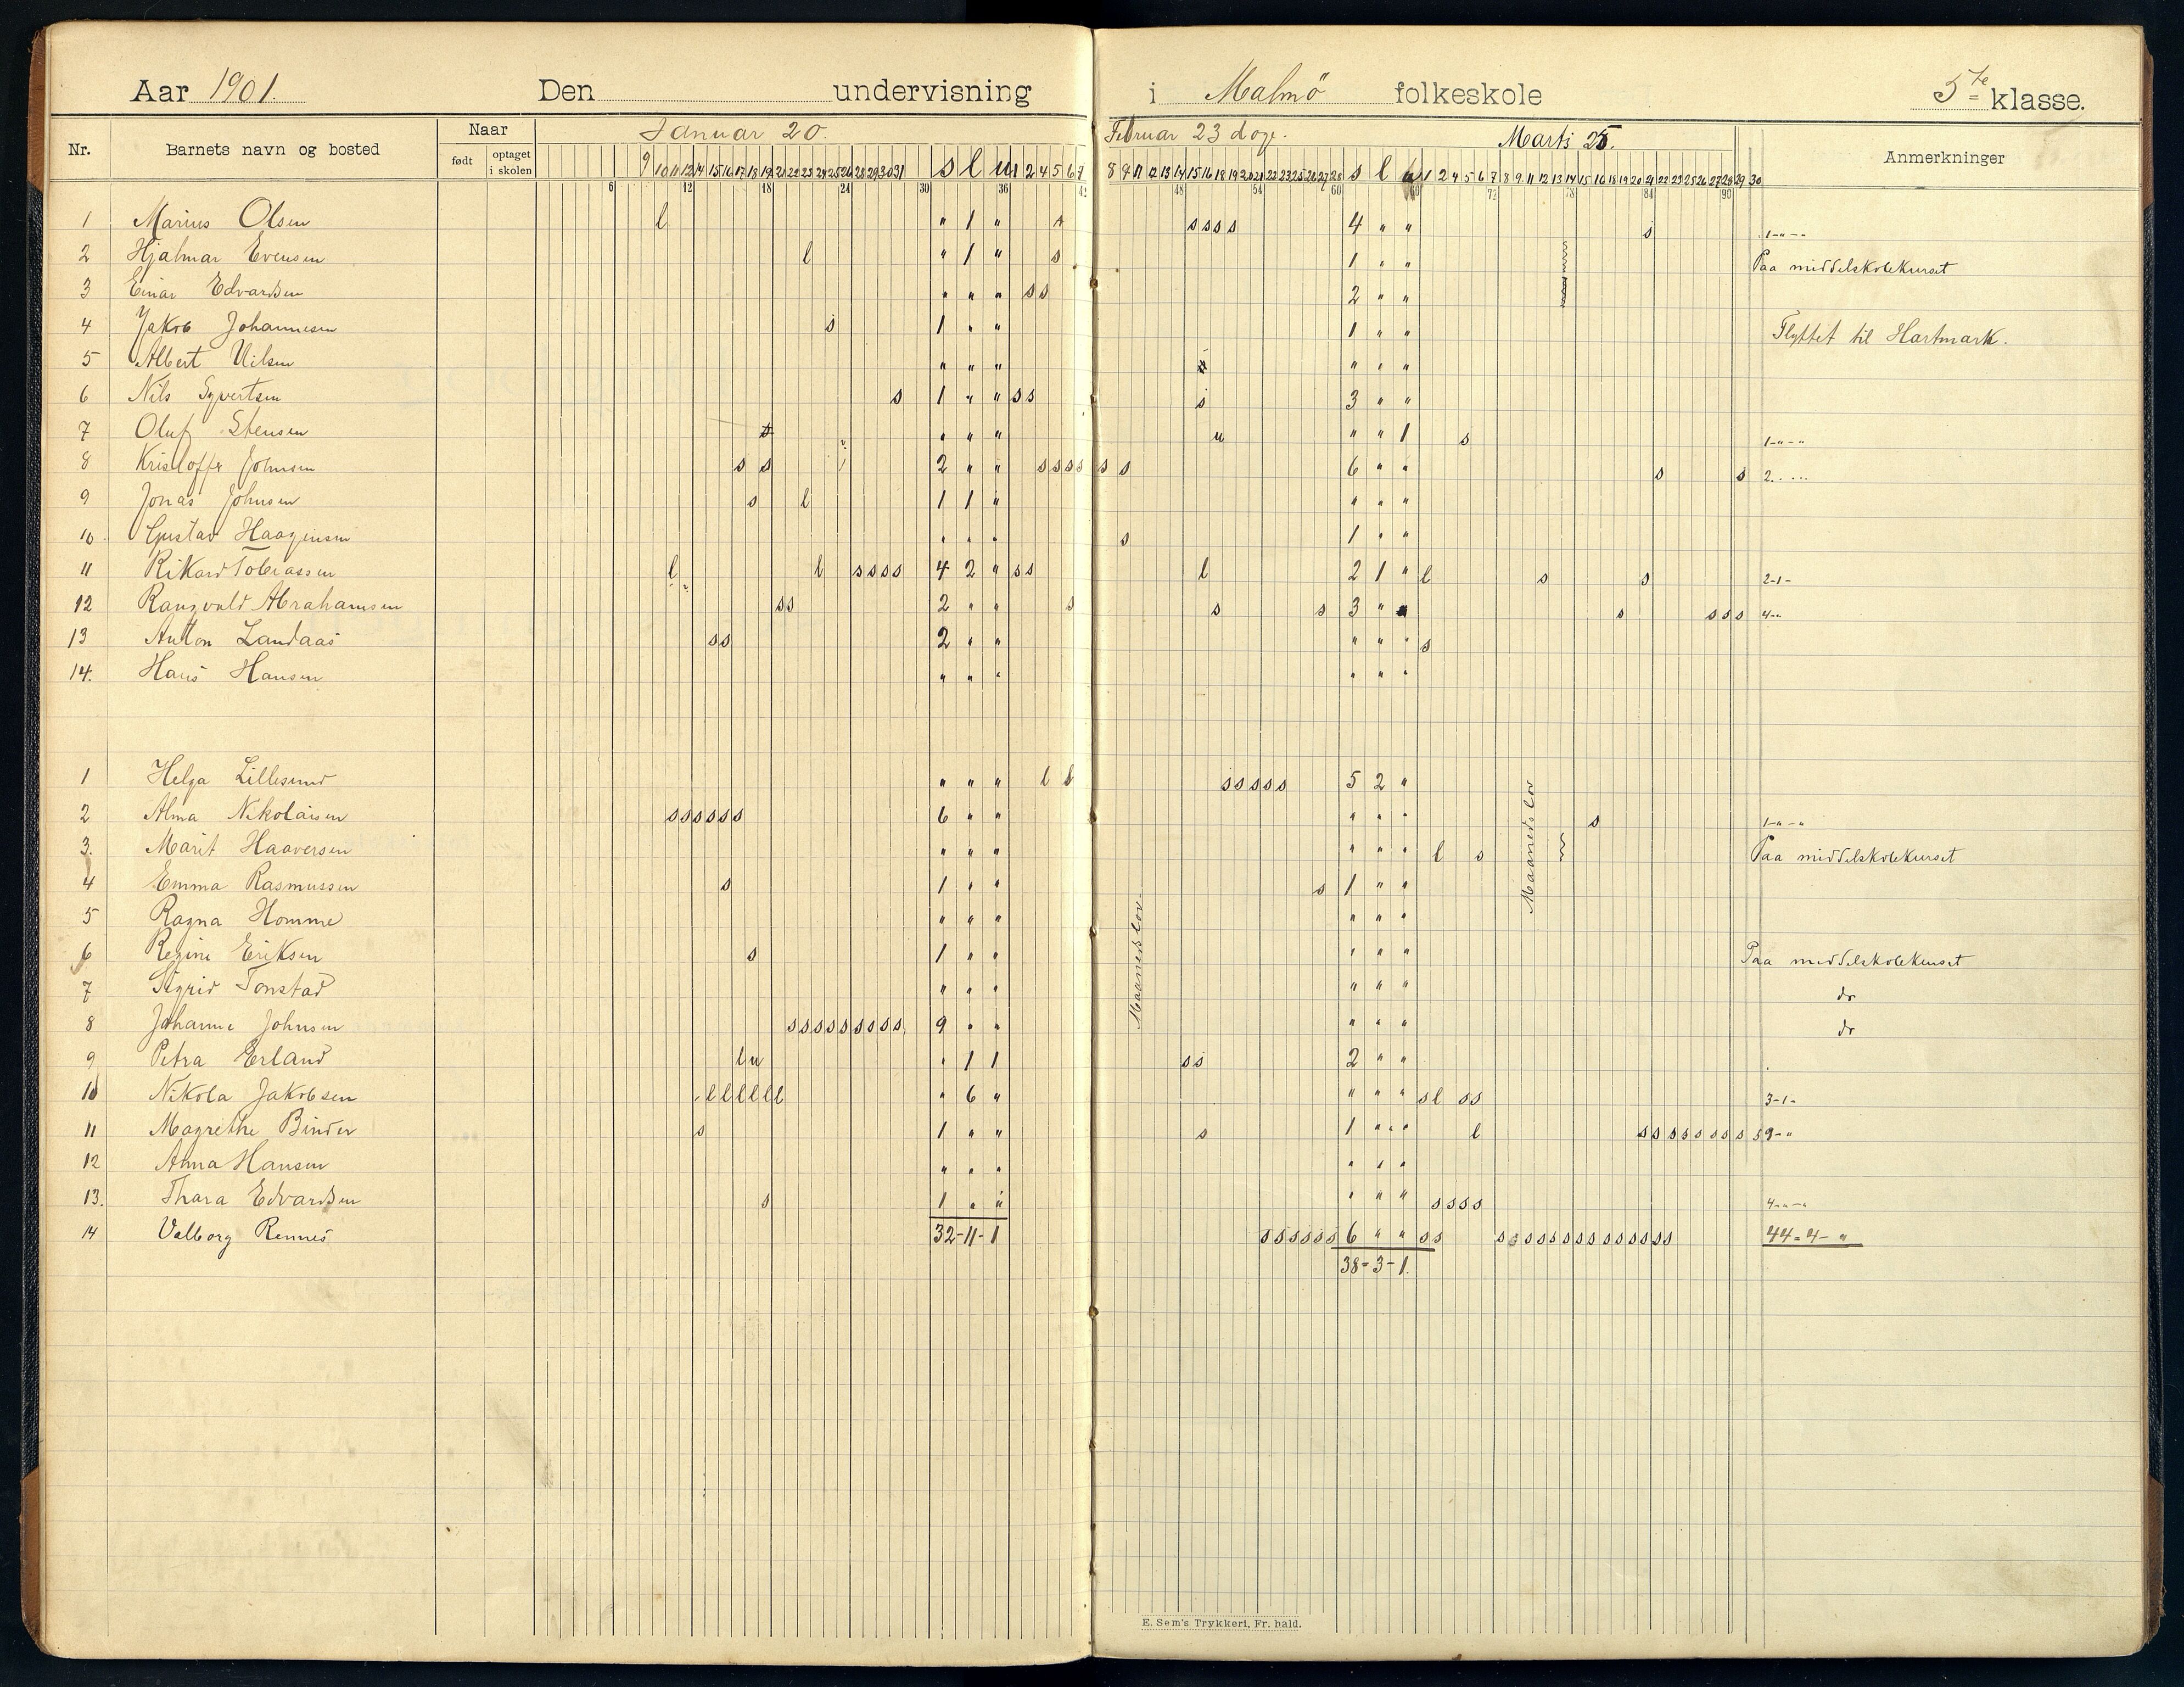 Aar 1901. Den undervisning i Malmö folkeskole 5te klasse.
Nr. Barnets navn og bosted Naar Januar 20. Februar 23 dage. Marts 25. Anmerkninger
født optaget i skolen
9 10 11 12 14 15 16 17 18 19 21 22 23 24 25 26 28 29 30 31 s l u 1 2 4 5 6 7 8 9 11 12 13 14 15 16 18 19 20 21 22 23 25 26 27 28 s l u 1 2 4 5 6 7 8 9 11 12 13 14 15 16 18 19 20 21 22 23 25 26 27 28 29 30
6 12 18 24 30 36 42 48 54 60 66 72 78 84 90
1 Marius Olsen l " 1 " s s s s s 4 " " s 1-"-"
2 Hjalmar Evensen l " 1 " s 1 " " Paa middelskolekurset
3 Einar Edvardsen " " " s s 2 " "
4 Jakob Johannesen s 1 " " 1 " " Flyttet til Hartmark.
5 Albert Nilsen " " " " " "
6 Nils Syvertsen s 1 " " s s s 3 " "
7 Oluf Stensen s " " " u " " 1 s 1-"-"
8 Kristoffer Johnsen s s 2 " " s s s s s s 6 " " s s 2
9 Jonas Johnsen s l 1 1 " " " "
10. Gustav Haagensen " " " s 1 " "
11 Rikard Tobiassen l l s s s s 4 2 " s s l 2 1 " l s s 2-1-
12 Rangvald Abrahamsen s s 2 " " s s s 3 " s s s s 4-"
13 Anton Landaas s s 2 " " " " " s
14. Hans Hansen " " " " " "
1 Helga Lillesund " " " l l s s s s s 5 2 "
2 Alma Nikolaisen s s s s s s 6 " " " " " s 1-"-"
3. Marit Haaversen " " " " " " l s Paa middelskolekurset
4 Emma Rasmussen s 1 " " s 1 " "
Maanedslov
5 Ragna Homme " " " " " "
6 Regine Eriksen s 1 " " " " " Paa middelskolekurset
7 Sigrid Tonstad " " " " " " do
Maanedslov.
8 Johanne Johnsen s s s s s s s s s 9 " " " " " do
9 Petra Erland l u " 1 1 s s 2 " "
10 Nikola Jakobsen l l l l l l " 6 " " " " s l s s 3-1-
11 Magrethe Binder s 1 " " s 1 " " l s s s s s s s s s 9-"
12 Anna Hansen " " " " " "
13. Thara Edvardsen s 1 " " " " " s s s s 4-"-"
14 Valborg Rennes 32-11-1 s s s s s s 6 " " s s s s s s s s s s s s s s s 44-4-"
38-3-1.
E. Sem's Trykkeri, Fr. hald.